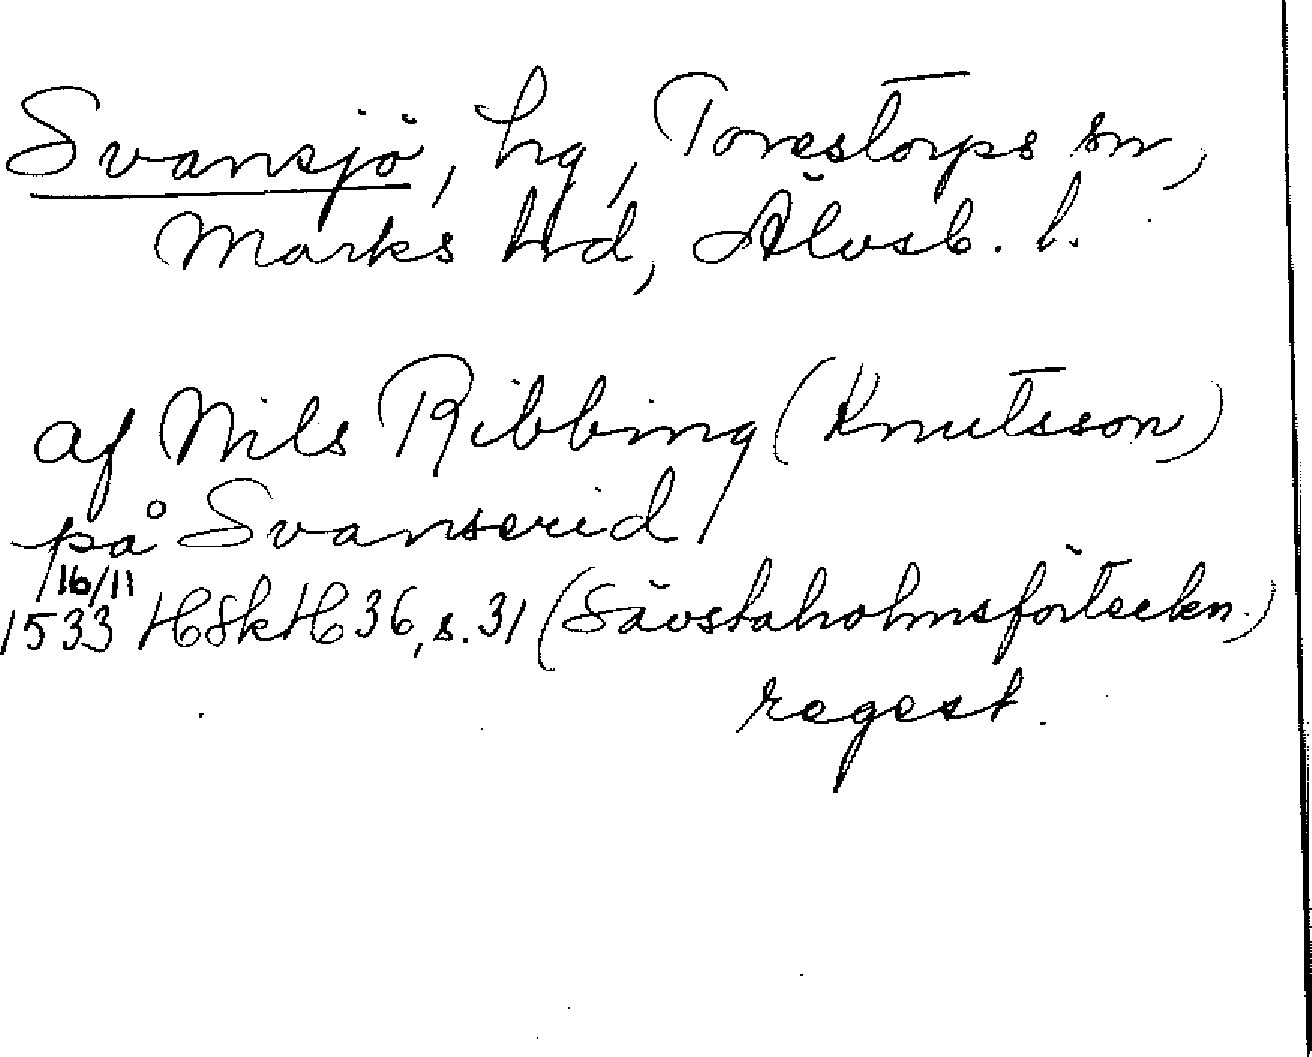 Svansjö, hg, Torestorps sn,
Marks hd, Älvsb. l.
af Nils Ribbing (Knutsson)
på Svanserid
16/11
1533 HSkH 36, s. 31 (Sävstaholmsförteckn.)
regest.